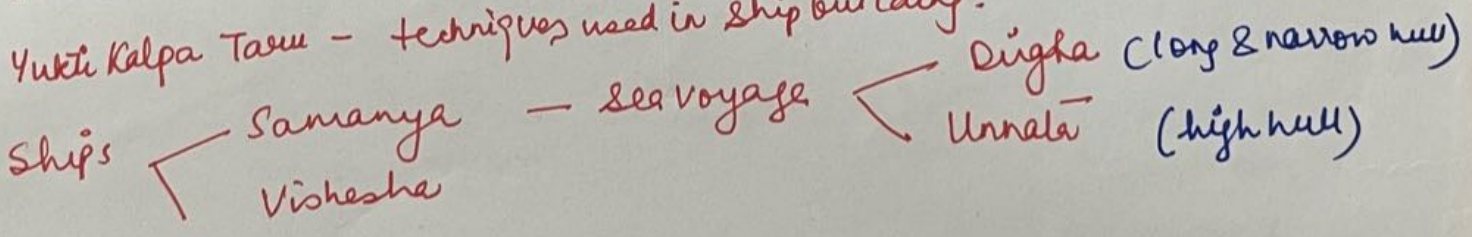 Yukti Kalpa Taru - techniques used in ship building.
Ships
Samanya - sea voyage
Dirgha (long & narrow hull)
Unnatā (high hull)
Vishesha